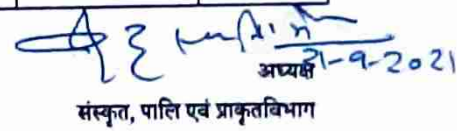 21-9-2021
अध्यक्ष
संस्कृत, पालि एवं प्राकृतविभाग